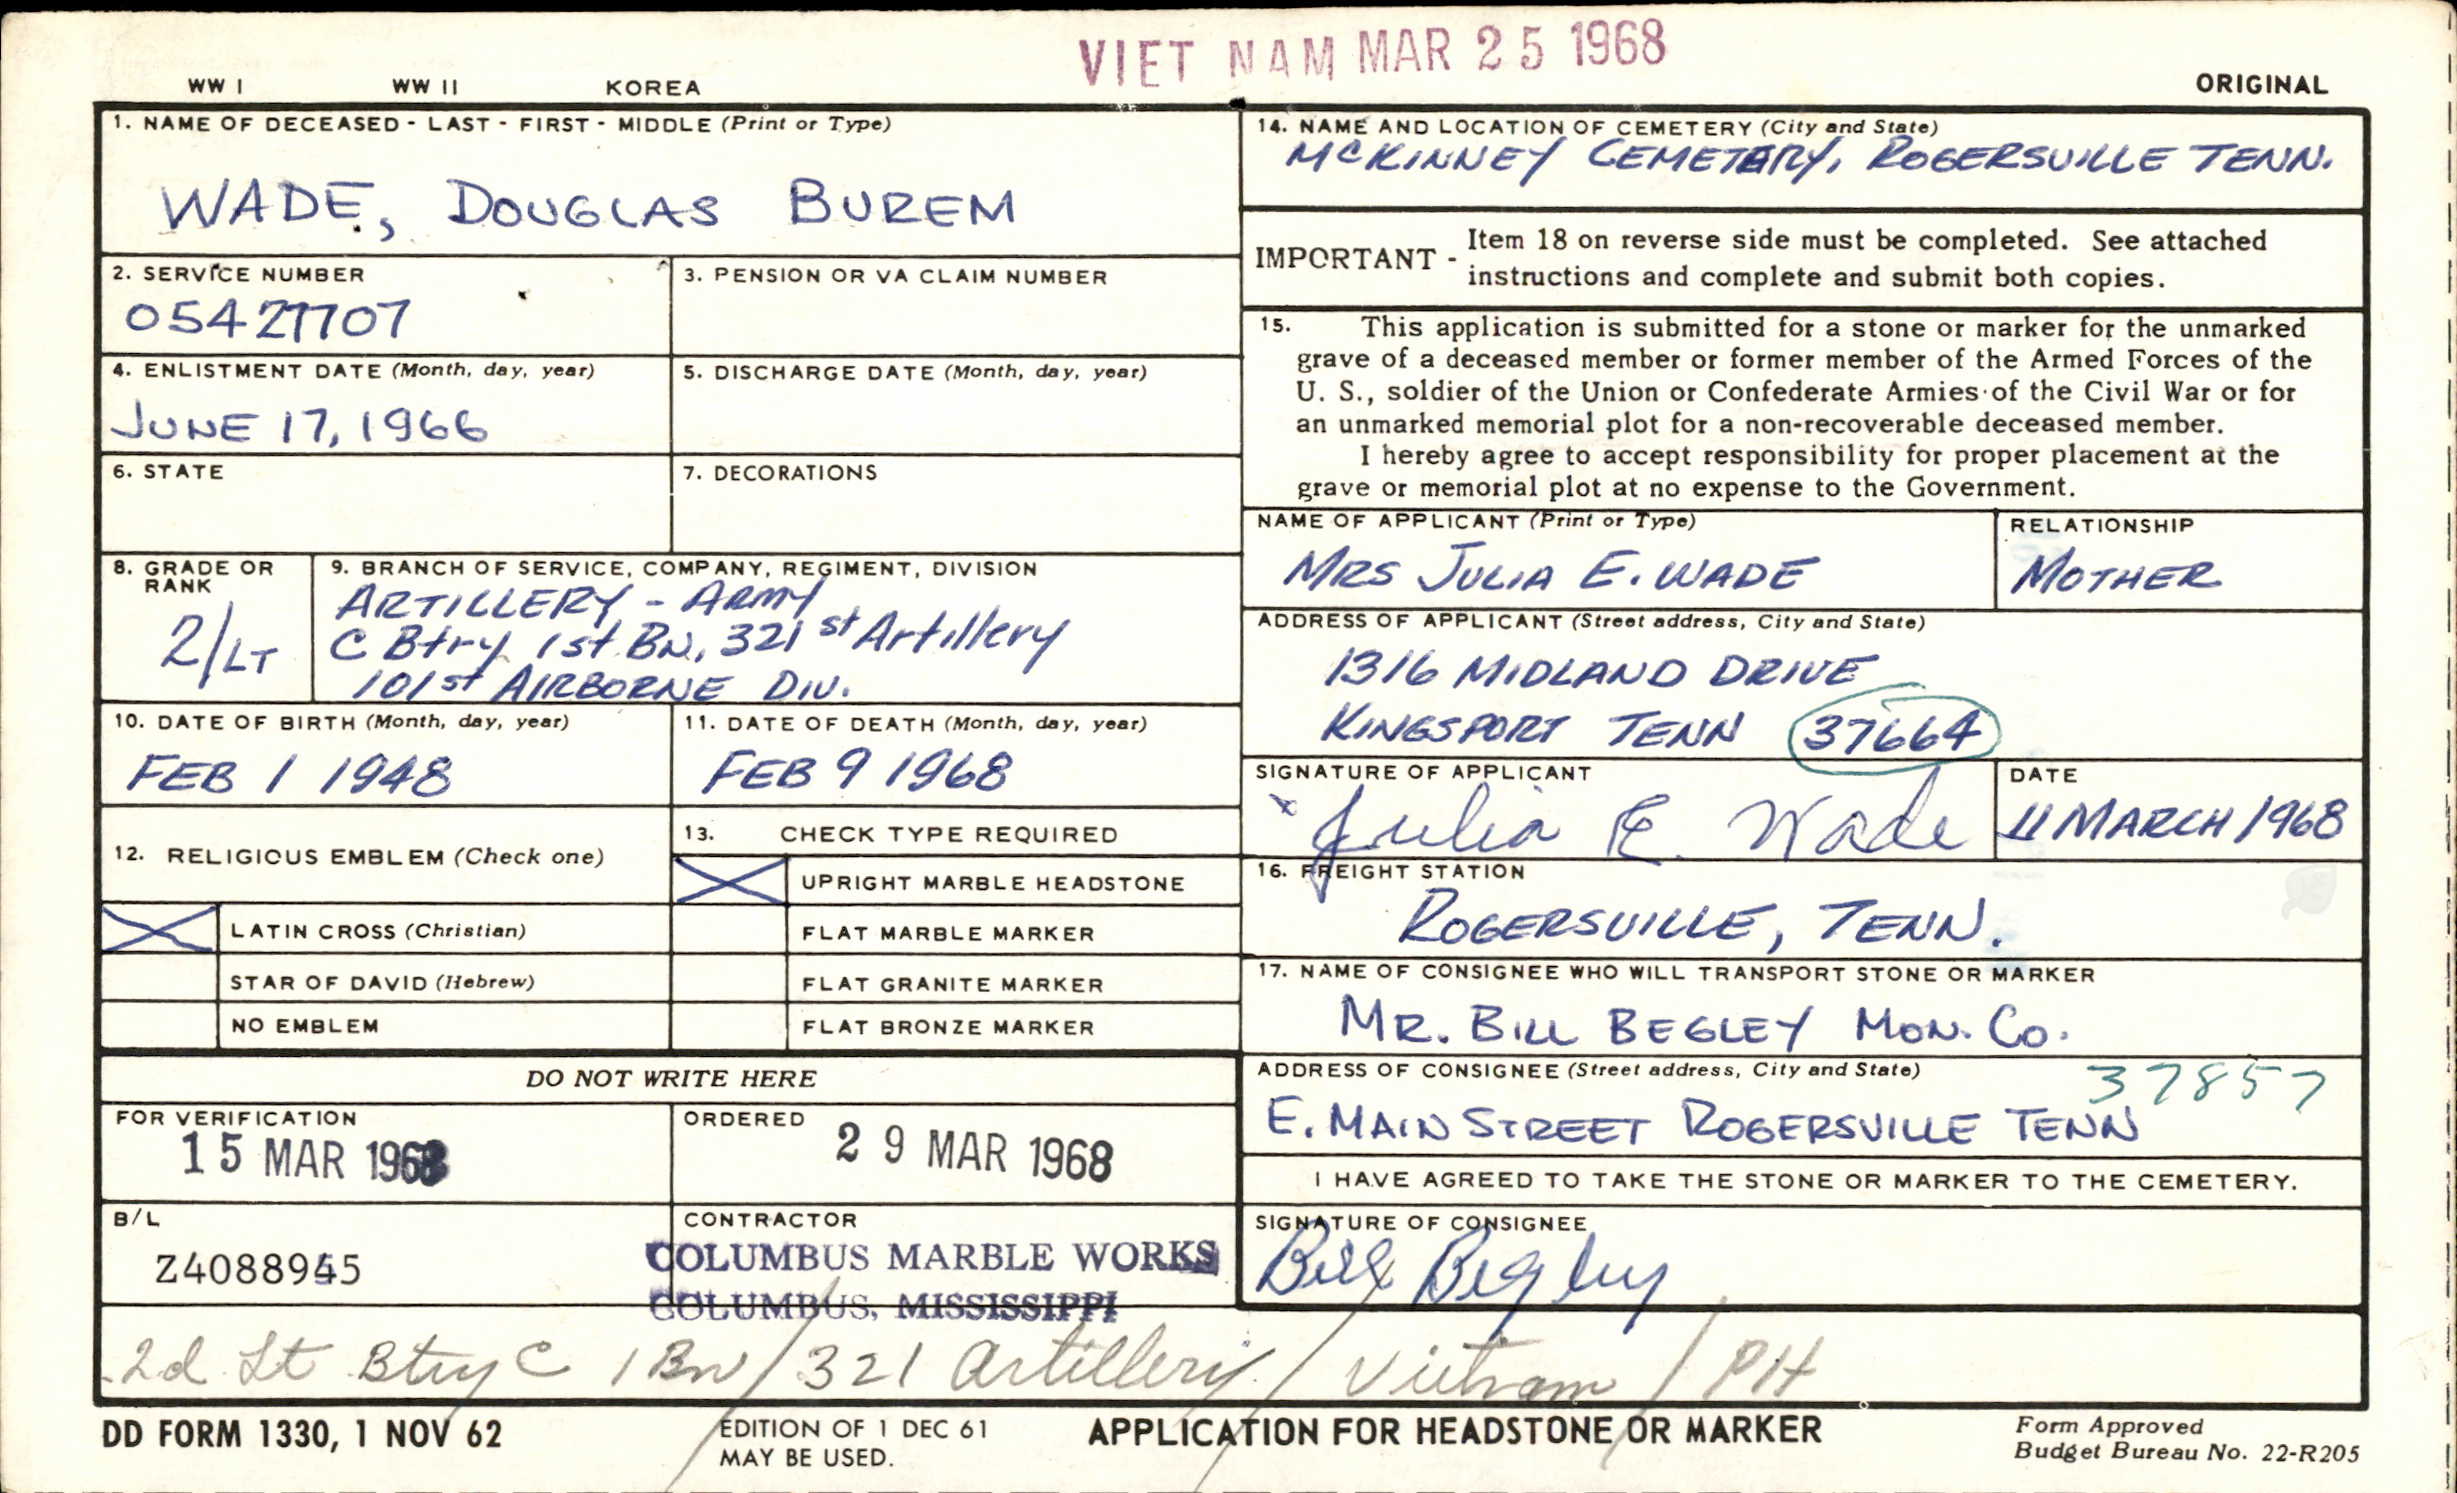 VIET NAM MAR 25 1968
WW I WW II KOREA ORIGINAL
1. NAME OF DECEASED - LAST - FIRST - MIDDLE (Print or Type)
WADE, DOUGLAS BUREM
2. SERVICE NUMBER
05427707
3. PENSION OR VA CLAIM NUMBER
4. ENLISTMENT DATE (Month, day, year)
JUNE 17, 1966
5. DISCHARGE DATE (Month, day, year)
6. STATE
7. DECORATIONS
8. GRADE OR
RANK
2/LT
9. BRANCH OF SERVICE, COMPANY, REGIMENT, DIVISION
ARTILLERY - ARMY
C Btry 1st BN, 321st Artillery
101st AIRBORNE DIV.
10. DATE OF BIRTH (Month, day, year)
FEB 1 1948
11. DATE OF DEATH (Month, day, year)
FEB 9 1968
12. RELIGIOUS EMBLEM (Check one)
LATIN CROSS (Christian)
STAR OF DAVID (Hebrew)
NO EMBLEM
13. CHECK TYPE REQUIRED
UPRIGHT MARBLE HEADSTONE
FLAT MARBLE MARKER
FLAT GRANITE MARKER
FLAT BRONZE MARKER
DO NOT WRITE HERE
FOR VERIFICATION
15 MAR 1968
ORDERED
29 MAR 1968
B/L
Z4088945
CONTRACTOR
COLUMBUS MARBLE WORKS
COLUMBUS, MISSISSIPPI
14. NAME AND LOCATION OF CEMETERY (City and State)
MCKINNEY CEMETARY, ROGERSVILLE TENN.
IMPORTANT - Item 18 on reverse side must be completed. See attached
instructions and complete and submit both copies.
15. This application is submitted for a stone or marker for the unmarked
grave of a deceased member or former member of the Armed Forces of the
U. S., soldier of the Union or Confederate Armies of the Civil War or for
an unmarked memorial plot for a non-recoverable deceased member.
I hereby agree to accept responsibility for proper placement at the
grave or memorial plot at no expense to the Government.
NAME OF APPLICANT (Print or Type)
MRS JULIA E. WADE
RELATIONSHIP
MOTHER
ADDRESS OF APPLICANT (Street address, City and State)
1316 MIDLAND DRIVE
KINGSPORT TENN 37664
SIGNATURE OF APPLICANT
x Julia E. Wade
DATE
11 MARCH 1968
16. FREIGHT STATION
ROGERSVILLE, TENN.
17. NAME OF CONSIGNEE WHO WILL TRANSPORT STONE OR MARKER
MR. BILL BEGLEY MON. CO.
ADDRESS OF CONSIGNEE (Street address, City and State)
37857
E. MAIN STREET ROGERSVILLE TENN
I HAVE AGREED TO TAKE THE STONE OR MARKER TO THE CEMETERY.
SIGNATURE OF CONSIGNEE
Bill Begley
2d Lt Btry C 1 Bn / 321 Artillery / Vietnam / PH
DD FORM 1330, 1 NOV 62
EDITION OF 1 DEC 61
MAY BE USED.
APPLICATION FOR HEADSTONE OR MARKER
Form Approved
Budget Bureau No. 22-R205